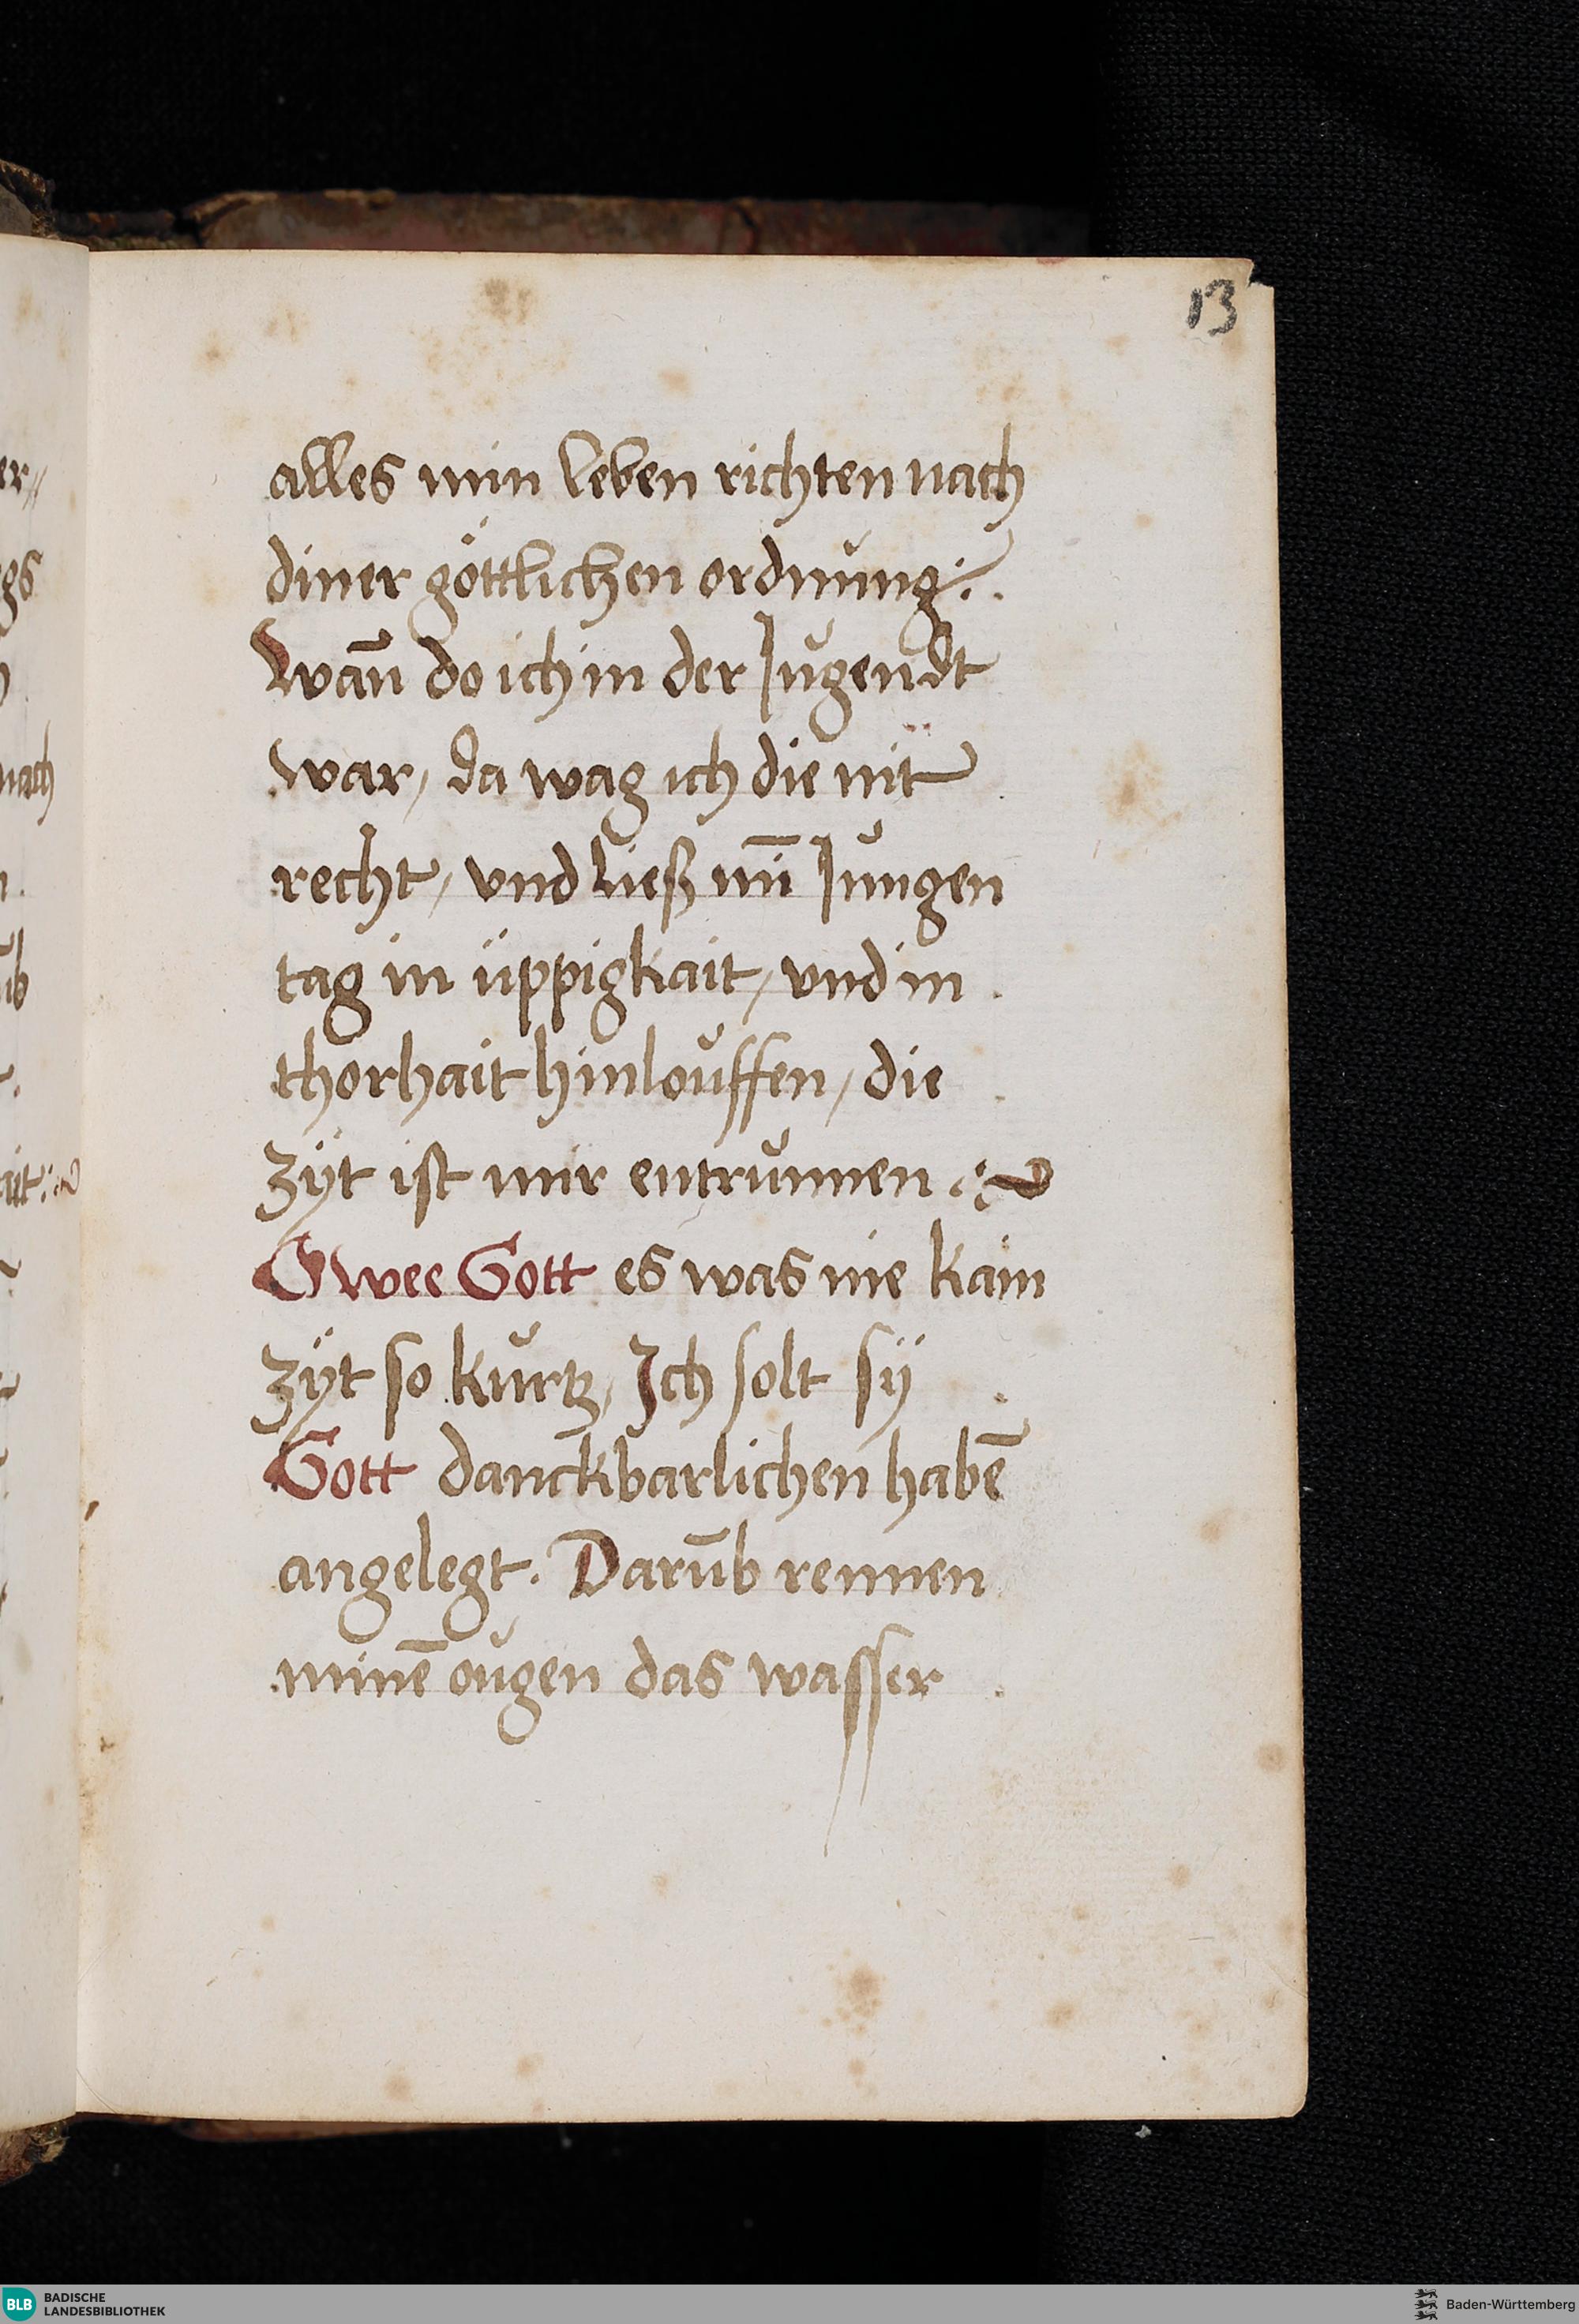 13
alles min leben richten nach
diner göttlichen ordnŭng:.
Wan̄ do ich in der Jŭgendt
war, da wag ich die nit
recht, vnd ließ min̄ Jŭngen
tag in üppigkait, vnd in
thorhait hinloŭffen, die
zÿt ist mir entrŭnnen.
O wee Gott es was nie kain
zÿt so kŭrtz, Ich solt sÿ
Gott danckbarlichen habē
angelegt. Darūb rennen
minē oŭgen das wasser
nach
BLB BADISCHE
LANDESBIBLIOTHEK
Baden-Württemberg